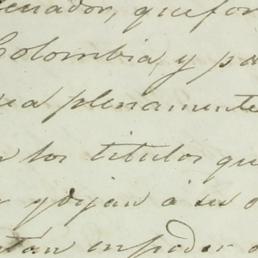 ecuador, que for
Colombia, y pa
ea plenamente
n los titulos que
y dijan á su
tan en poder